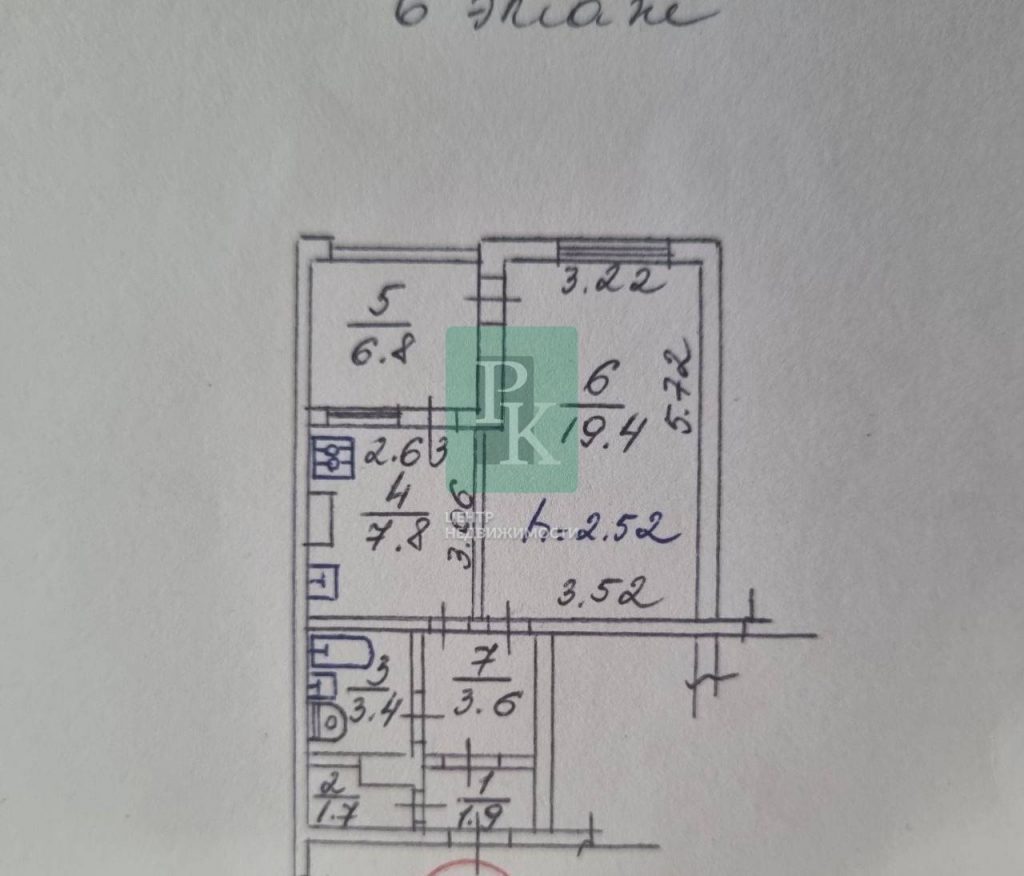 6 этаже
3.22
5
6.8
6
19.4
5.72
РК
2.63
4
7.8
ЦЕНТР
НЕДВИЖИМОСТИ
h=2.52
3.52
3
3.4
7
3.6
2
1.7
1
1.9